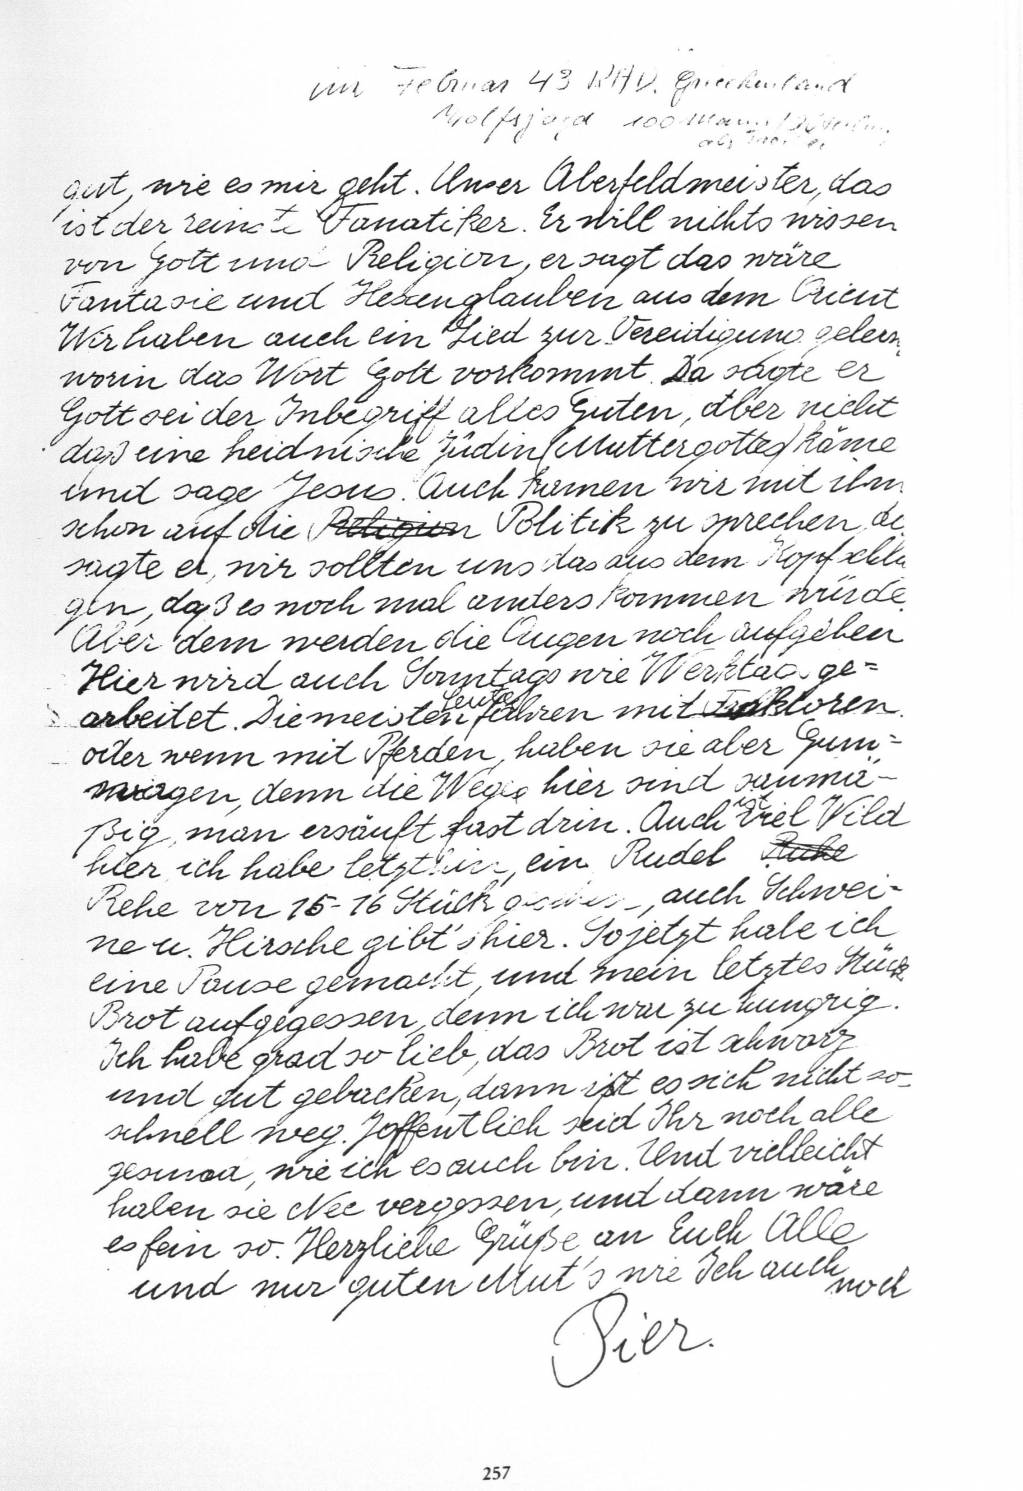 im Februar 43 RAD. Griechenland
Wolfsjagd 100 Mann
als
gut, wie es mir geht. Unser Oberfeldmeister, das
ist der reinste Fanatiker. Er will nichts wissen
von Gott und Religion, er sagt das wäre
Fantasie und Hexenglauben aus dem Orient
Wir haben auch ein Lied zur Vereidigung gelern
worin das Wort Gott vorkommt. Da sagte er
Gott sei der Inbegriff alles Guten, aber nicht
daß eine heidnische Jüdin (Muttergottes) käme
und sage Jesus. Auch kamen wir mit ihm
schon auf die Religion Politik zu sprechen, da
sagte er, wir sollten uns das aus dem Kopf schla
gen, daß es noch mal anders kommen würde.
Aber dem werden die Augen noch aufgehen
Hier wird auch Sonntags wie Werktags ge=
arbeitet. Die meisten Leute fahren mit Traktoren.
oder wenn mit Pferden, haben sie aber Gum=
wagen, denn die Wege hier sind saumä-
ßig, man ersäuft fast drin. Auch ist viel Wild
hier, ich habe letzthin, ein Rudel Ruhe
Rehe von 15-16 Stück gesehen, auch Schwei-
ne u. Hirsche gibt's hier. So jetzt habe ich
eine Pause gemacht, und mein letztes Stück
Brot aufgegessen, denn ich war zu hungrig.
Ich habe grad so lieb, das Brot ist schwarz
und gut gebacken, dann ißt es sich nicht so-
schnell weg. Hoffentlich seid Ihr noch alle
gesund, wie ich es auch bin. Und vielleicht
haben sie Nec vergessen, und dann wäre
es fein so. Herzliche Grüße an Euch Alle
und nur guten Mut's wie Ich auch noch
Pier.
257